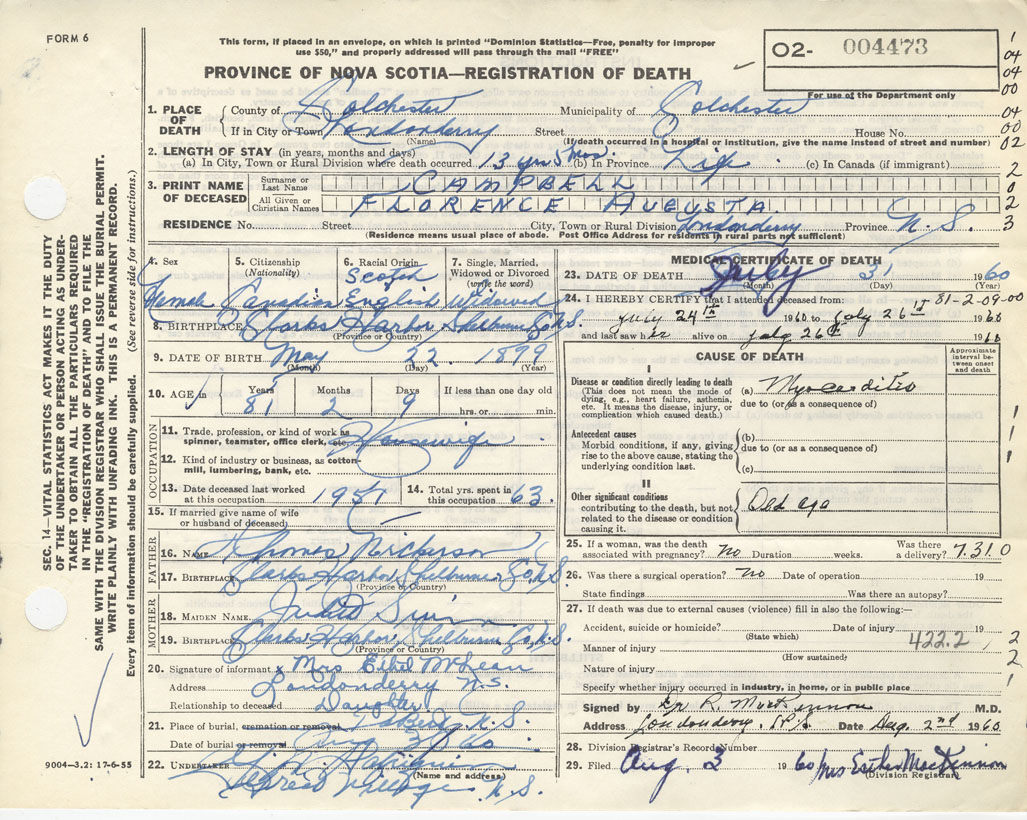 FORM 6
This form, if placed in an envelope, on which is printed "Dominion Statistics—Free, penalty for improper
use $50," and properly addressed will pass through the mail "FREE"
PROVINCE OF NOVA SCOTIA—REGISTRATION OF DEATH
O2- 004473
For use of the Department only
1. PLACE OF DEATH County of Colchester Municipality of Colchester
If in City or Town Londonderry Street House No.
(Name) (If death occurred in a hospital or institution, give the name instead of street and number)
2. LENGTH OF STAY (in years, months and days)
(a) In City, Town or Rural Division where death occurred 13 yrs 5 mos. (b) In Province Life (c) In Canada (if immigrant)
3. PRINT NAME OF DECEASED Surname or Last Name CAMPBELL
All Given or Christian Names FLORENCE AUGUSTA
RESIDENCE No. Street City, Town or Rural Division Londonderry Province N.S.
(Residence means usual place of abode. Post Office Address for residents in rural parts not sufficient)
4. Sex Female
5. Citizenship (Nationality) Canadian
6. Racial Origin Scotch English
7. Single, Married, Widowed or Divorced (write the word) Widowed
8. BIRTHPLACE Clarks Harbor, Shelburne Co. N.S.
(Province or Country)
9. DATE OF BIRTH May 22 1879
(Month) (Day) (Year)
10. AGE in Years 81 Months 2 Days 9 If less than one day old
hrs. or min.
OCCUPATION
11. Trade, profession, or kind of work as spinner, teamster, office clerk, etc. Housewife
12. Kind of industry or business, as cotton-mill, lumbering, bank, etc.
13. Date deceased last worked at this occupation 1957
14. Total yrs. spent in this occupation 63
15. If married give name of wife or husband of deceased
FATHER
16. Name Thomas Nickerson
17. Birthplace Clarks Harbor, Shelburne Co. N.S.
(Province or Country)
MOTHER
18. Maiden Name
19. Birthplace Clarks Harbor, Shelburne Co. N.S.
(Province or Country)
20. Signature of informant x Mrs Ethel
Address Londonderry N.S.
Relationship to deceased Daughter
21. Place of burial, cremation or removal N.S.
Date of burial or removal
22. Undertaker
(Name and address)
Village N.S.
9004—3.2: 17-6-55
SEC. 14—VITAL STATISTICS ACT MAKES IT THE DUTY
OF THE UNDERTAKER OR PERSON ACTING AS UNDER-
TAKER TO OBTAIN ALL THE PARTICULARS REQUIRED
IN THE "REGISTRATION OF DEATH" AND TO FILE THE
SAME WITH THE DIVISION REGISTRAR WHO SHALL ISSUE THE BURIAL PERMIT.
WRITE PLAINLY WITH UNFADING INK. THIS IS A PERMANENT RECORD.
Every item of information should be carefully supplied. (See reverse side for instructions.)
MEDICAL CERTIFICATE OF DEATH
23. DATE OF DEATH July 31 1960
(Month) (Day) (Year)
24. I HEREBY CERTIFY that I attended deceased from: 81-2-09-00
July 24th 1960 to July 26th 1960
and last saw her alive on July 26th 1960
CAUSE OF DEATH
Approximate interval between onset and death
I
Disease or condition directly leading to death
(This does not mean the mode of dying, e.g., heart failure, asthenia, etc. It means the disease, injury, or complication which caused death.)
(a) Myocarditis
due to (or as a consequence of)
Antecedent causes
Morbid conditions, if any, giving rise to the above cause, stating the underlying condition last.
(b)
due to (or as a consequence of)
(c)
II
Other significant conditions
contributing to the death, but not related to the disease or condition causing it.
Old age
25. If a woman, was the death associated with pregnancy? No Duration weeks. Was there a delivery? 7.31.0
26. Was there a surgical operation? No Date of operation 19
State findings Was there an autopsy?
27. If death was due to external causes (violence) fill in also the following:—
Accident, suicide or homicide? Date of injury 19
(State which) 422.2
Manner of injury
(How sustained)
Nature of injury
Specify whether injury occurred in industry, in home, or in public place
Signed by R. MacKinnon M.D.
Address Londonderry, N.S. Date Aug. 2nd 1960
28. Division Registrar's Record Number
29. Filed Aug. 3 1960 Mrs Esther MacKinnon
(Division Registrar)
1
04
04
00
04
00
02
2
0
2
3
1
1
1
2
2
1